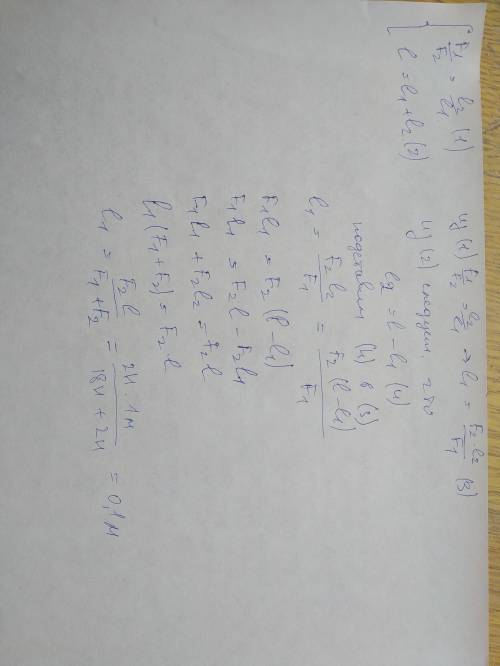 { F₁/F₂ = l₂/l₁ (1)
l = l₁ + l₂ (2)
из (1) F₁/F₂ = l₂/l₁ → l₁ = F₂·l₂/F₁ (3)
из (2) следует, что
l₂ = l - l₁ (4)
подставим (4) в (3)
l₁ = F₂ l₂/F₁ = F₂ (l - l₁)/F₁
F₁l₁ = F₂ (l - l₁)
F₁l₁ = F₂l - F₂l₁
F₁l₁ + F₂l₂ = F₂l
l₁(F₁ + F₂) = F₂ l
l₁ = F₂ l/(F₁ + F₂) = 2Н · 1м/(18Н + 2Н) = 0,1м